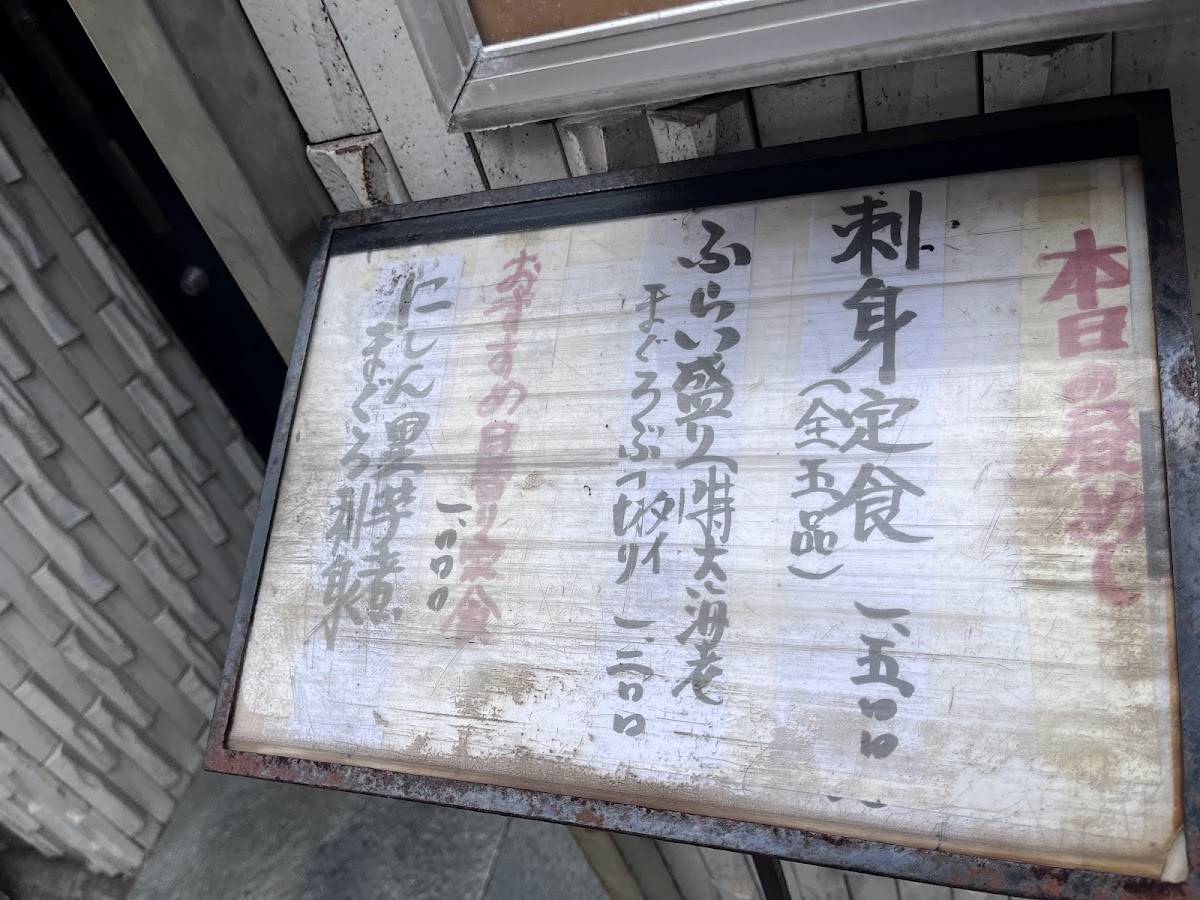 本日の昼めし
刺身定食 一、五〇〇
（全五品）
ふらい盛り 特大海老
まぐろぶつ切り タイ 一、二〇〇
おすすめ日替り定食
一、〇〇〇
にしん黒
まぐろ刺身